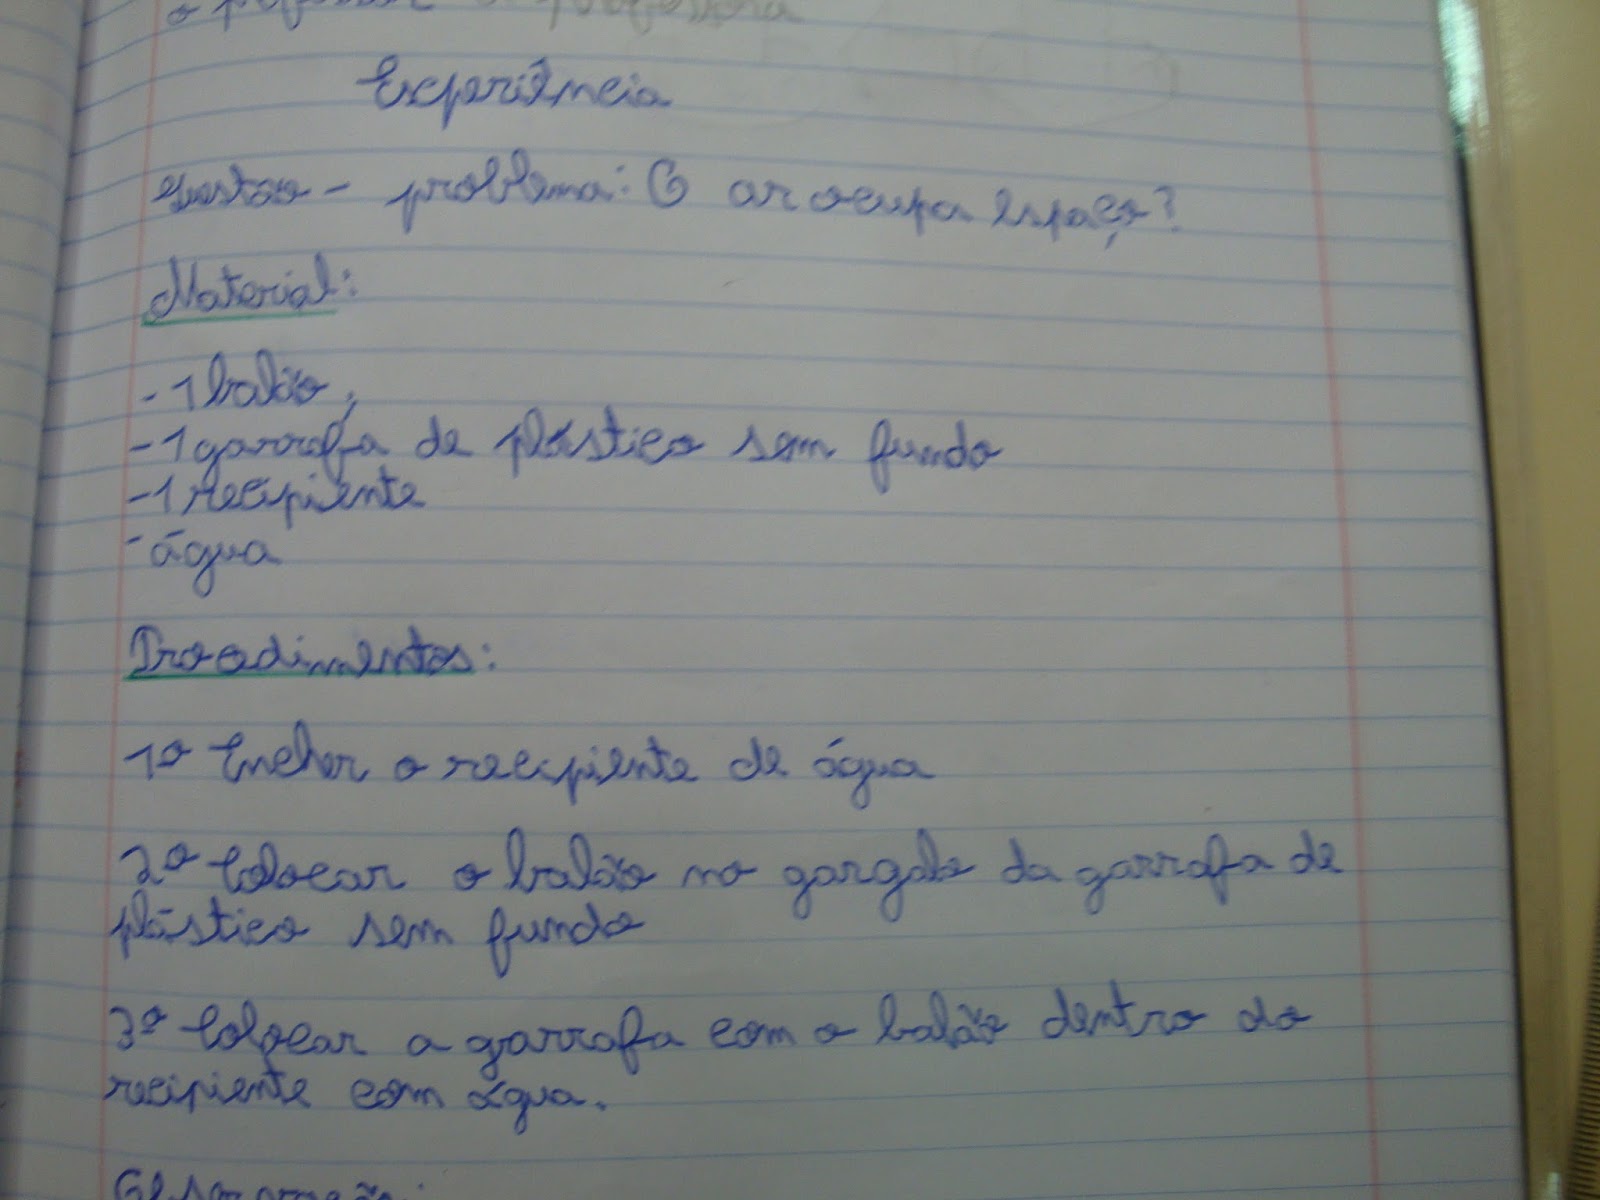 o professor e professora
Experiência
Questão - problema: O ar ocupa espaço?
Material:
- 1 balão;
- 1 garrafa de plástico sem fundo
- 1 recipiente
- água
Procedimentos:
1º Encher o recipiente de água
2º Colocar o balão no gargalo da garrafa de
plástico sem fundo
3º Colocar a garrafa com o balão dentro do
recipiente com água.
Observação: